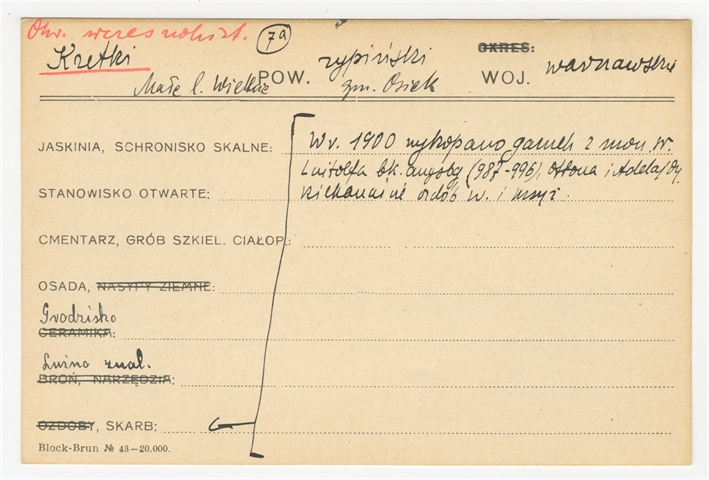 Okr. wczesnohist.
7a
Kretki
Małe l. Wielkie
POW. rypiński
gm. Osiek
OKRES:
WOJ. warszawskie
JASKINIA, SCHRONISKO SKALNE: W r. 1900 wykopano garnek z mon. sr.
Luitolfa bk. augsb. (987-996), Ottona i Adelajdy,
STANOWISKO OTWARTE: ozdób w. i
CMENTARZ, GRÓB SZKIEL. CIAŁOP.:
OSADA, NASYPY ZIEMNE:
Grodzisko
CERAMIKA:
Luźno znal.
BROŃ, NARZĘDZIA:
OZDOBY, SKARB:
Block-Brun № 43—20.000.